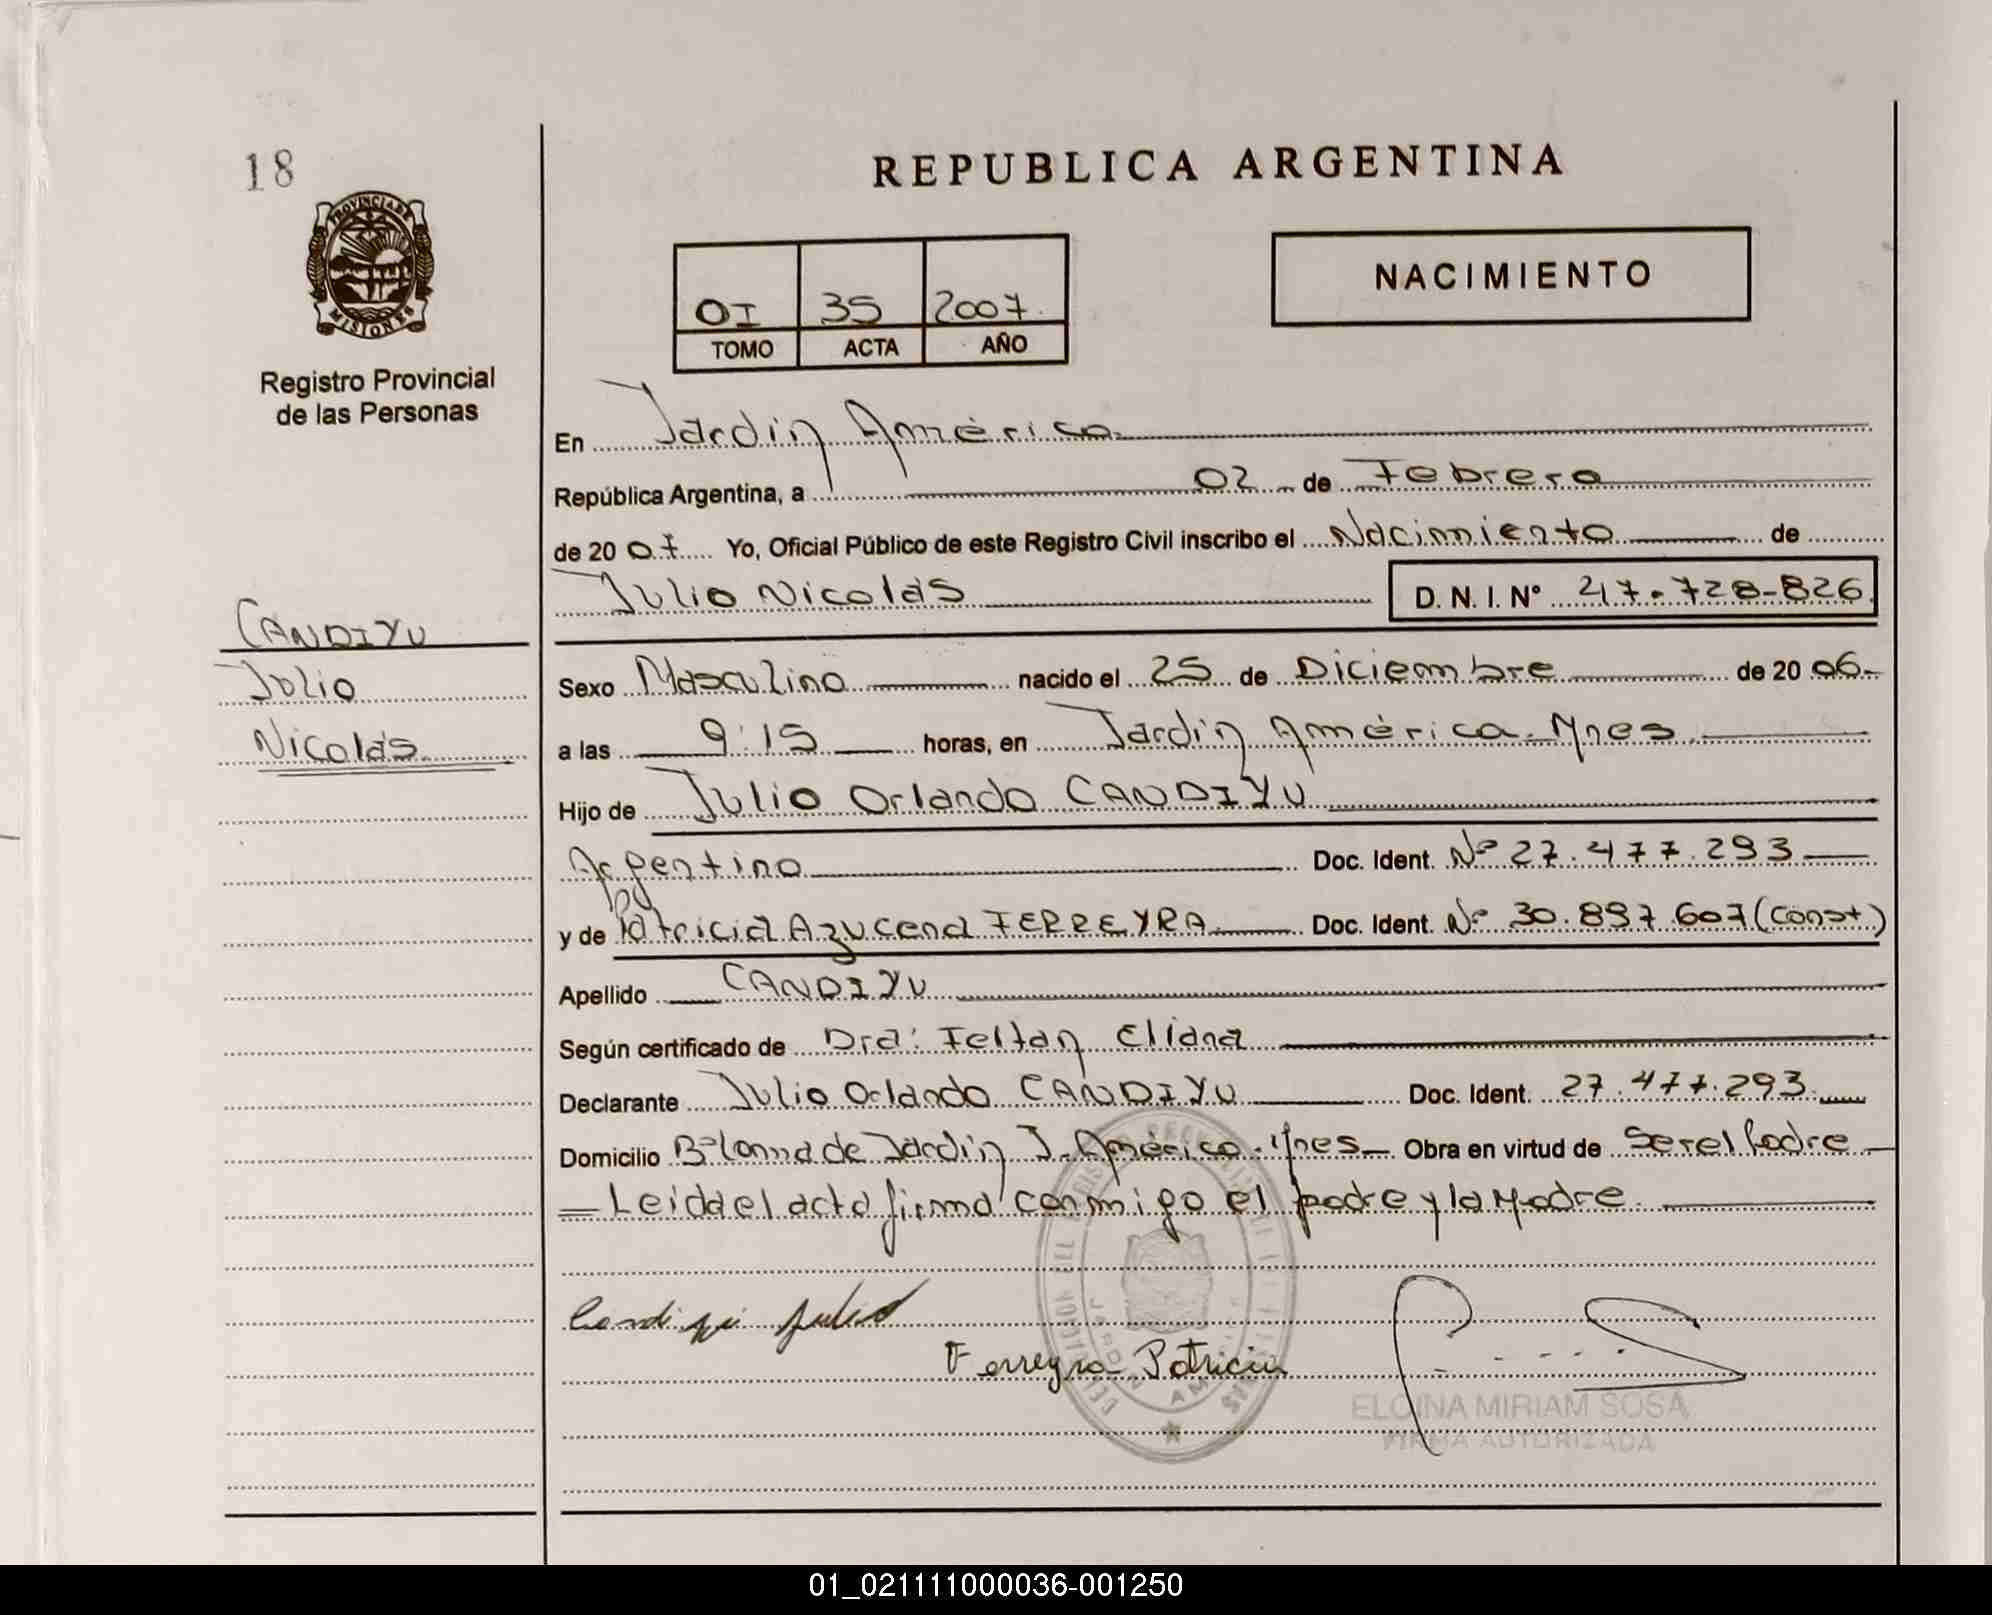 18
PROVINCIA DE
MISIONES
Registro Provincial
de las Personas
CANDIYU
Julio
Nicolás
REPUBLICA ARGENTINA
OI 35 2007.
TOMO ACTA AÑO
NACIMIENTO
En Jardín América
República Argentina, a 02 de Febrero
de 20 07 Yo, Oficial Público de este Registro Civil inscribo el Nacimiento de
Julio Nicolás D. N. I. Nº 47.728-826
Sexo Masculino nacido el 25 de Diciembre de 20 06-
a las 9:15 horas, en Jardín América. Mnes
Hijo de Julio Orlando CANDIYU
Argentino Doc. Ident. Nº 27.477.293
y de Patricia Azucena FERREYRA Doc. Ident. Nº 30.897.607 (Const)
Apellido CANDIYU
Según certificado de Dra: Feltan Eliana
Declarante Julio Orlando CANDIYU Doc. Ident. 27.477.293
Domicilio Bº Loma de Jardín J. América. Mnes Obra en virtud de Ser el Padre
= Leida el acta firma conmigo el padre y la Madre.
Candiyu Julio
Ferreyra Patricia
ELCINA MIRIAM SOSA
FIRMA AUTORIZADA
01_021111000036-001250